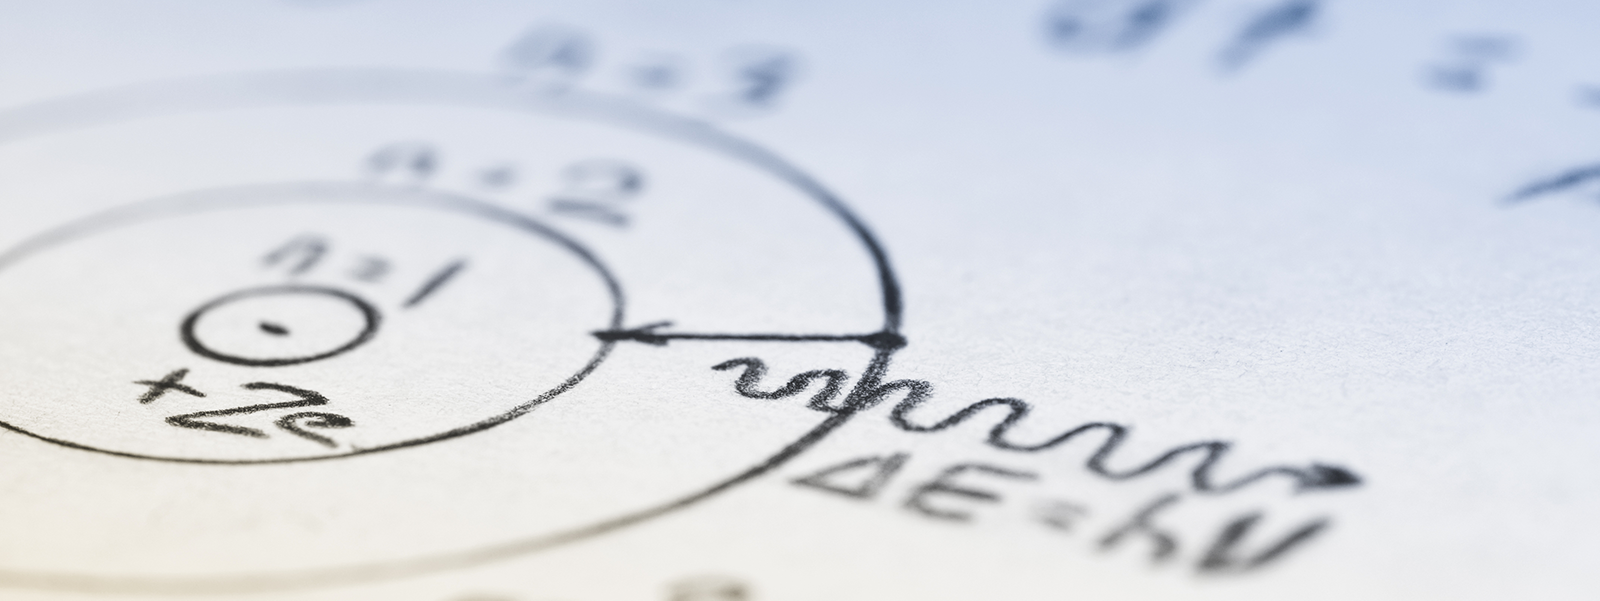 n = 3
n = 2
n = 1
+Ze
ΔE = hν